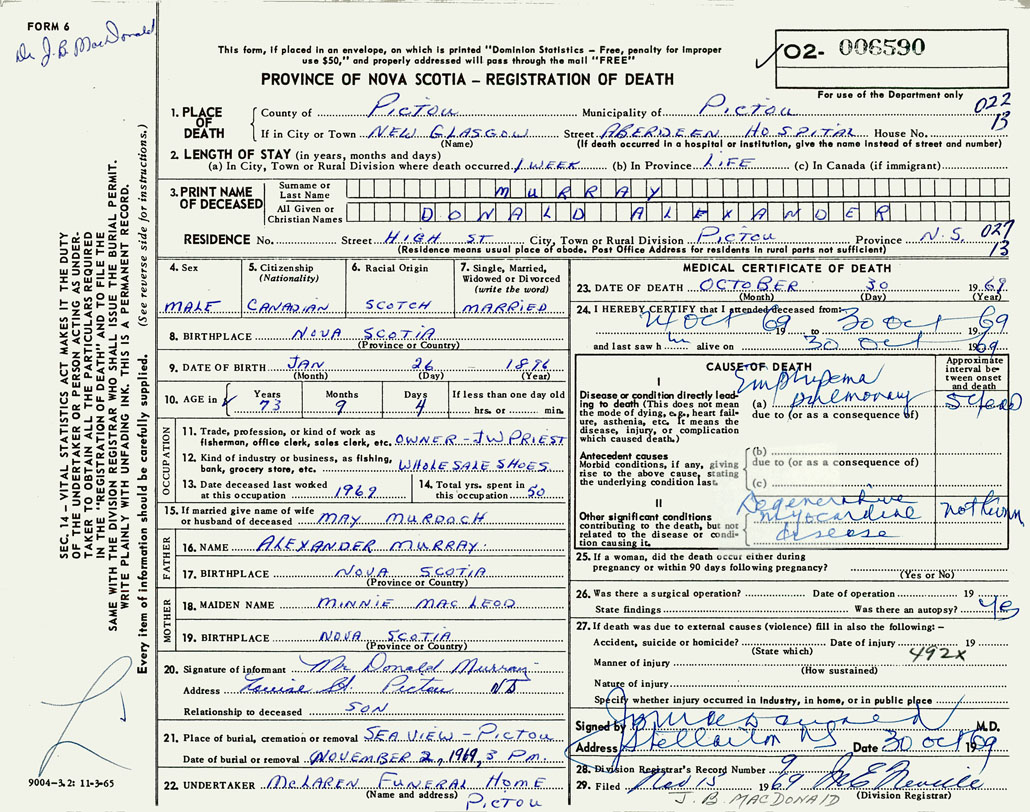 FORM 6
Dr J.B. MacDonald
This form, if placed in an envelope, on which is printed "Dominion Statistics – Free, penalty for improper
use $50," and properly addressed will pass through the mail "FREE"
PROVINCE OF NOVA SCOTIA – REGISTRATION OF DEATH
02- 006590
For use of the Department only
022
13
1. PLACE OF DEATH
County of PICTOU Municipality of PICTOU
If in City or Town NEW GLASGOW Street ABERDEEN HOSPITAL House No.
(Name) (If death occurred in a hospital or institution, give the name instead of street and number)
2. LENGTH OF STAY (in years, months and days)
(a) In City, Town or Rural Division where death occurred 1 WEEK (b) In Province LIFE (c) In Canada (if immigrant)
3. PRINT NAME OF DECEASED
Surname or Last Name MURRAY
All Given or Christian Names DONALD ALEXANDER
RESIDENCE No. Street HIGH ST City, Town or Rural Division PICTOU Province N.S. 027
13
(Residence means usual place of abode. Post Office Address for residents in rural parts not sufficient)
4. Sex
MALE
5. Citizenship
(Nationality)
CANADIAN
6. Racial Origin
SCOTCH
7. Single, Married, Widowed or Divorced
(write the word)
MARRIED
8. BIRTHPLACE NOVA SCOTIA
(Province or Country)
9. DATE OF BIRTH JAN 26 1896
(Month) (Day) (Year)
10. AGE in
Years 73 Months 9 Days 4
If less than one day old
hrs. or min.
OCCUPATION
11. Trade, profession, or kind of work as
fisherman, office clerk, sales clerk, etc. OWNER - JW PRIEST
12. Kind of industry or business, as fishing,
bank, grocery store, etc. WHOLESALE SHOES
13. Date deceased last worked
at this occupation 1969
14. Total yrs. spent in
this occupation 50
15. If married give name of wife
or husband of deceased MAY MURDOCH
FATHER
16. NAME ALEXANDER MURRAY
17. BIRTHPLACE NOVA SCOTIA
(Province or Country)
MOTHER
18. MAIDEN NAME MINNIE MAC LEOD
19. BIRTHPLACE NOVA SCOTIA
(Province or Country)
20. Signature of informant Mr Donald Murray
Address Louise St. Pictou NS
Relationship to deceased SON
21. Place of burial, cremation or removal SEAVIEW - PICTOU
Date of burial or removal NOVEMBER 2, 1969, 3 P.M.
22. UNDERTAKER McLAREN FUNERAL HOME
(Name and address) PICTOU
MEDICAL CERTIFICATE OF DEATH
23. DATE OF DEATH OCTOBER 30 1969
(Month) (Day) (Year)
24. I HEREBY CERTIFY that I attended deceased from:
24 Oct 1969 to 30 Oct 1969
and last saw him alive on 30 Oct 1969
CAUSE OF DEATH
Approximate interval between onset and death
I
Disease or condition directly leading to death (This does not mean the mode of dying, e.g., heart failure, asthenia, etc. It means the disease, injury, or complication which caused death.)
Emphysema
(a) pulmonary
due to (or as a consequence of)
Antecedent causes
Morbid conditions, if any, giving rise to the above cause, stating the underlying condition last.
(b)
due to (or as a consequence of)
(c)
II
Other significant conditions contributing to the death, but not related to the disease or condition causing it.
Degenerative
myocardial
disease
not known
25. If a woman, did the death occur either during
pregnancy or within 90 days following pregnancy?
(Yes or No)
26. Was there a surgical operation? Date of operation 19
State findings Was there an autopsy? Yes
27. If death was due to external causes (violence) fill in also the following:–
Accident, suicide or homicide? Date of injury 19
(State which) 492x
Manner of injury
(How sustained)
Nature of injury
Specify whether injury occurred in industry, in home, or in public place
Signed by M.D.
Address Stellarton NS Date 30 Oct 1969
28. Division Registrar's Record Number 9
29. Filed Nov 15 1969
(Division Registrar)
J. B. MACDONALD
SEC. 14 – VITAL STATISTICS ACT MAKES IT THE DUTY
OF THE UNDERTAKER OR PERSON ACTING AS UNDER-
TAKER TO OBTAIN ALL THE PARTICULARS REQUIRED
IN THE "REGISTRATION OF DEATH" AND TO FILE THE
SAME WITH THE DIVISION REGISTRAR WHO SHALL ISSUE THE BURIAL PERMIT.
WRITE PLAINLY WITH UNFADING INK. THIS IS A PERMANENT RECORD.
Every item of information should be carefully supplied. (See reverse side for instructions.)
9004–3.2: 11-3-65